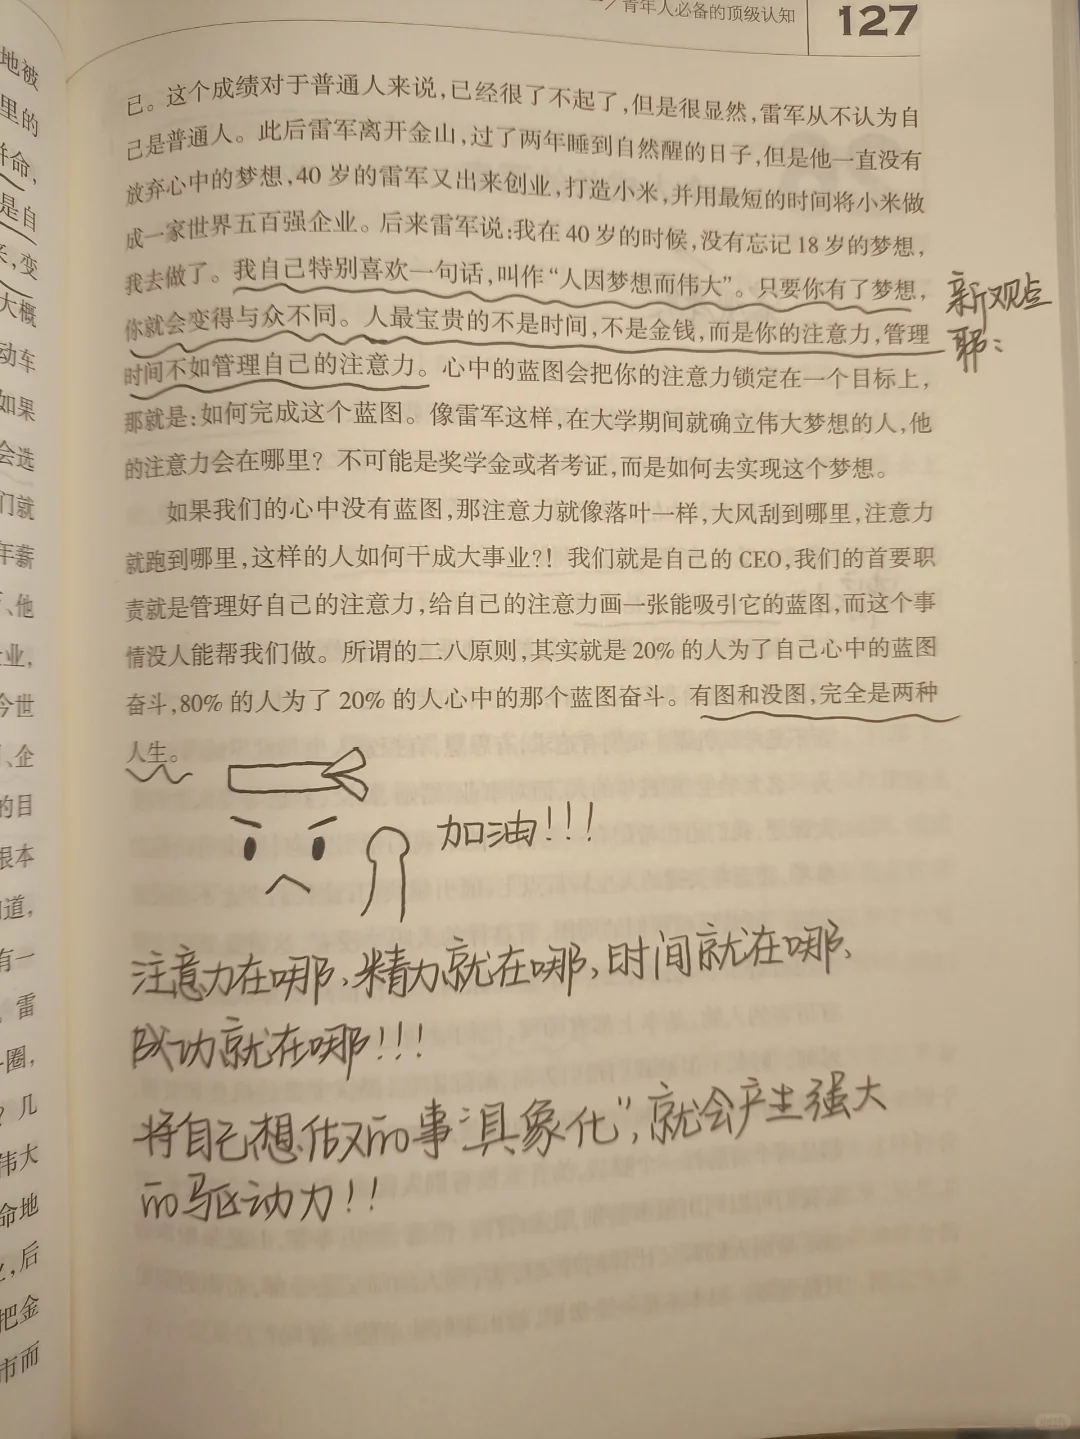 ／青年人必备的顶级认知 127
已。这个成绩对于普通人来说,已经很了不起了,但是很显然,雷军从不认为自
己是普通人。此后雷军离开金山,过了两年睡到自然醒的日子,但是他一直没有
放弃心中的梦想,40 岁的雷军又出来创业,打造小米,并用最短的时间将小米做
成一家世界五百强企业。后来雷军说:我在 40 岁的时候,没有忘记 18 岁的梦想,
我去做了。我自己特别喜欢一句话,叫作“人因梦想而伟大”。只要你有了梦想,
你就会变得与众不同。人最宝贵的不是时间,不是金钱,而是你的注意力,管理
时间不如管理自己的注意力。心中的蓝图会把你的注意力锁定在一个目标上,
那就是:如何完成这个蓝图。像雷军这样,在大学期间就确立伟大梦想的人,他
的注意力会在哪里？不可能是奖学金或者考证,而是如何去实现这个梦想。
如果我们的心中没有蓝图,那注意力就像落叶一样,大风刮到哪里,注意力
就跑到哪里,这样的人如何干成大事业?！我们就是自己的 CEO,我们的首要职
责就是管理好自己的注意力,给自己的注意力画一张能吸引它的蓝图,而这个事
情没人能帮我们做。所谓的二八原则,其实就是 20% 的人为了自己心中的蓝图
奋斗,80% 的人为了 20% 的人心中的那个蓝图奋斗。有图和没图,完全是两种
人生。
新观点
耶:
加油!!!
注意力在哪、精力就在哪,时间就在哪、
成功就在哪!!!
将自己想做的事“具象化”,就会产生强大
的驱动力!!
地被
里的
拼命,
是自
来,变
大概
动车
如果
会选
们就
年薪
、他
业,
今世
、企
的目
根本
知道,
有一
雷
圈,
？几
伟大
命地
,后
把金
市而